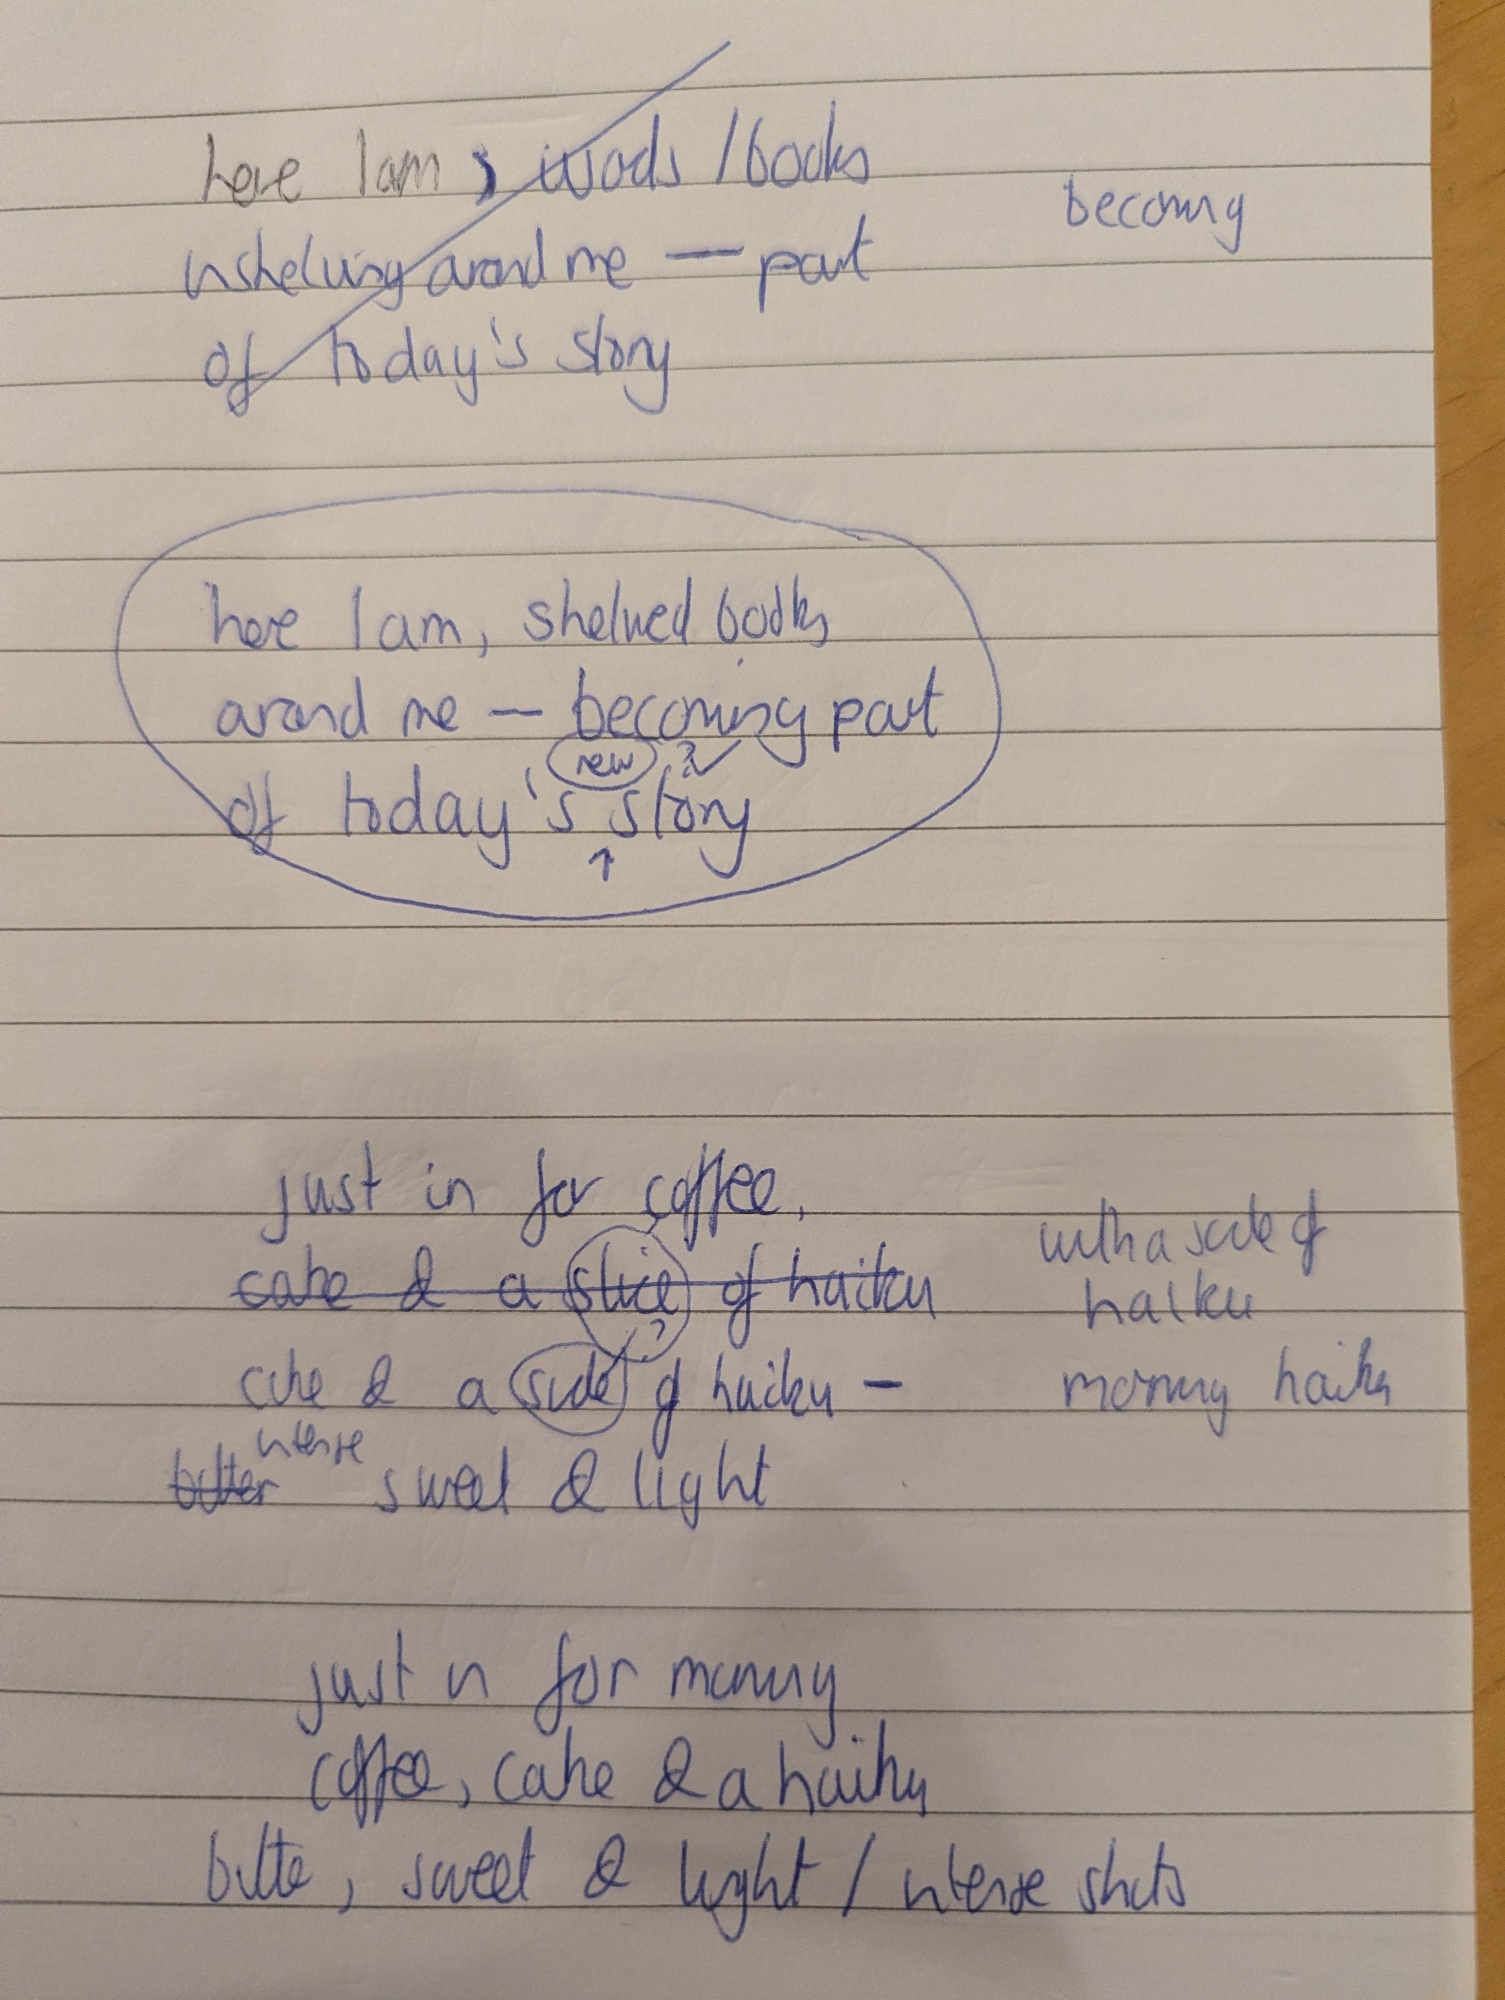 here I am, words / books
becoming
unshelving around me — part
of today's story
here I am, shelved books
around me — becoming part
new ?
of today's story
just in for coffee,
cake & a slice of haiku
with a side of
haiku
?
cake & a side of haiku —
morning haiku
intense
bitter sweet & light
just in for morning
coffee, cake & a haiku
bitter, sweet & light / intense shots